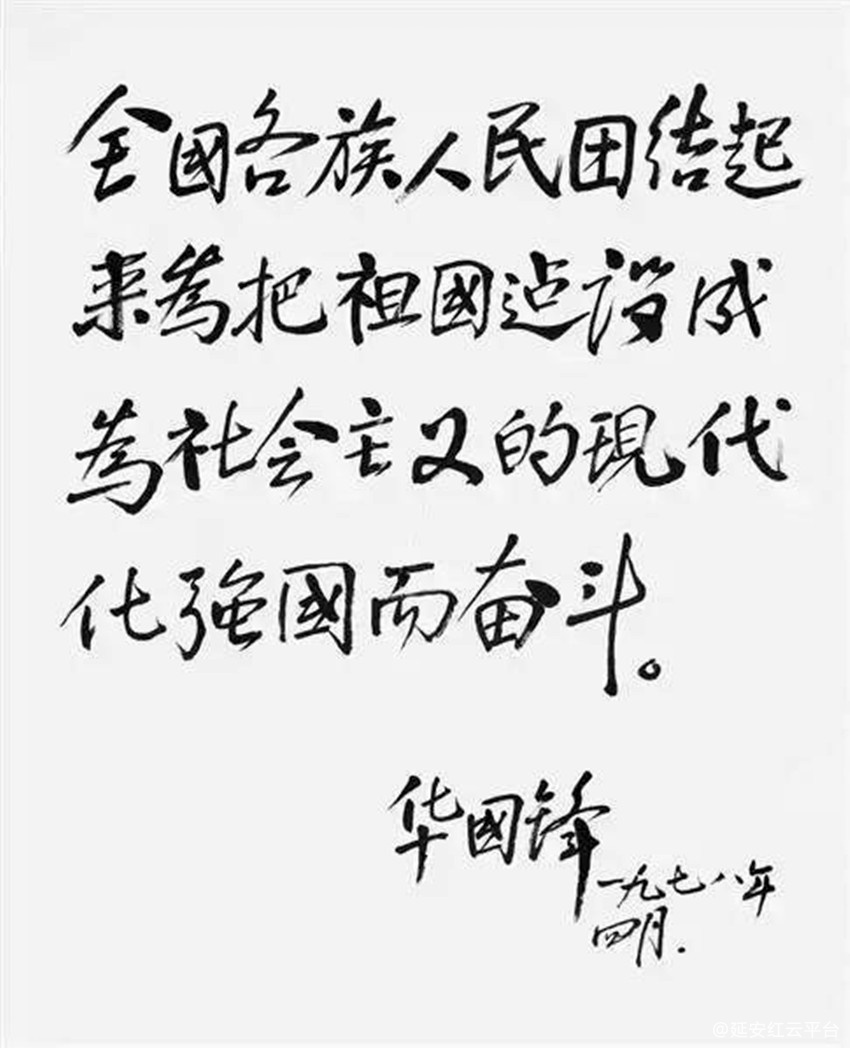 全國各族人民团结起
来為把祖國迠設成
為社会主义的現代
化強國而奋斗。
华國锋
一九七八年
四月.
@延安红云平台